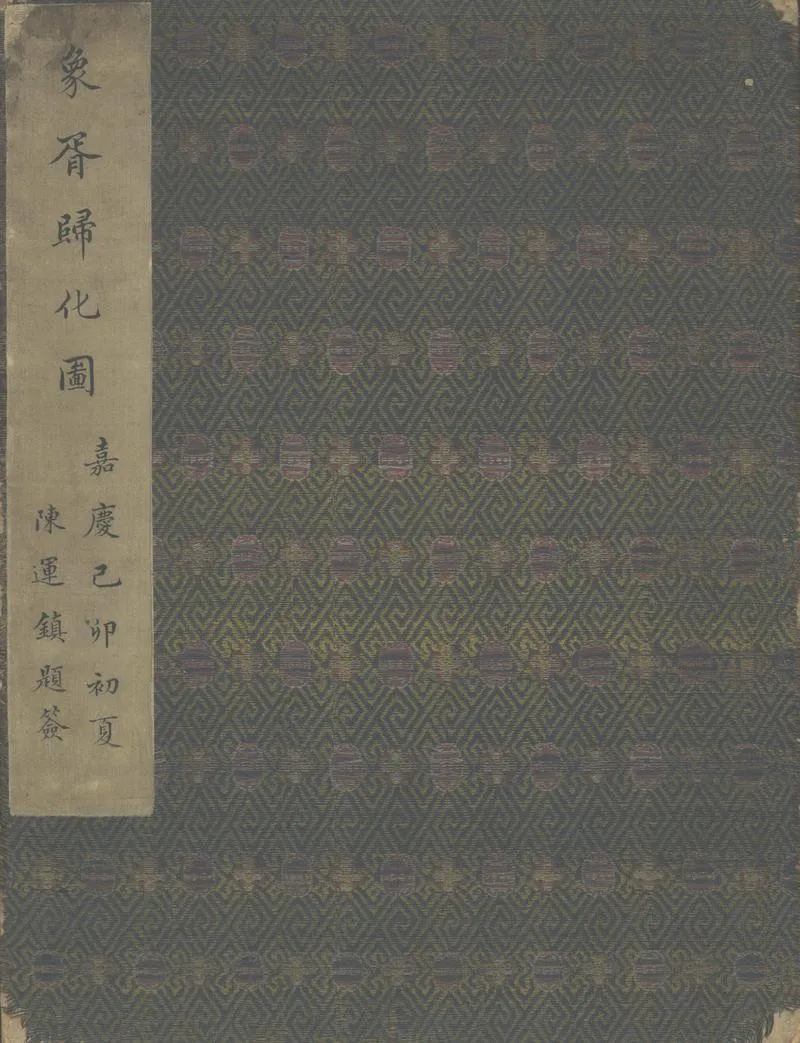 象胥歸化圖
嘉慶己卯初夏
陳運鎮題簽